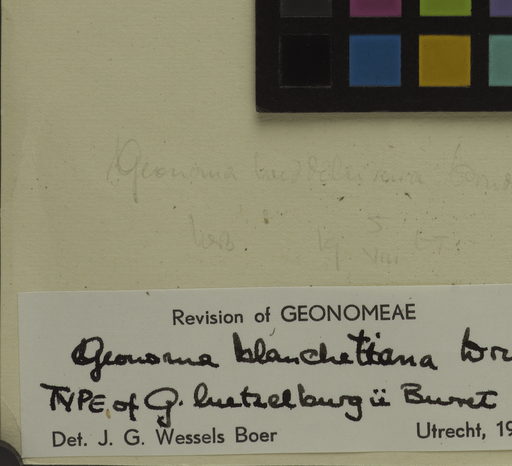 Geonoma
Revision of GEONOMEAE
Geonoma blanchetiana
TYPE of G. luetzelburgii Burret
Det. J. G. Wessels Boer Utrecht, 19